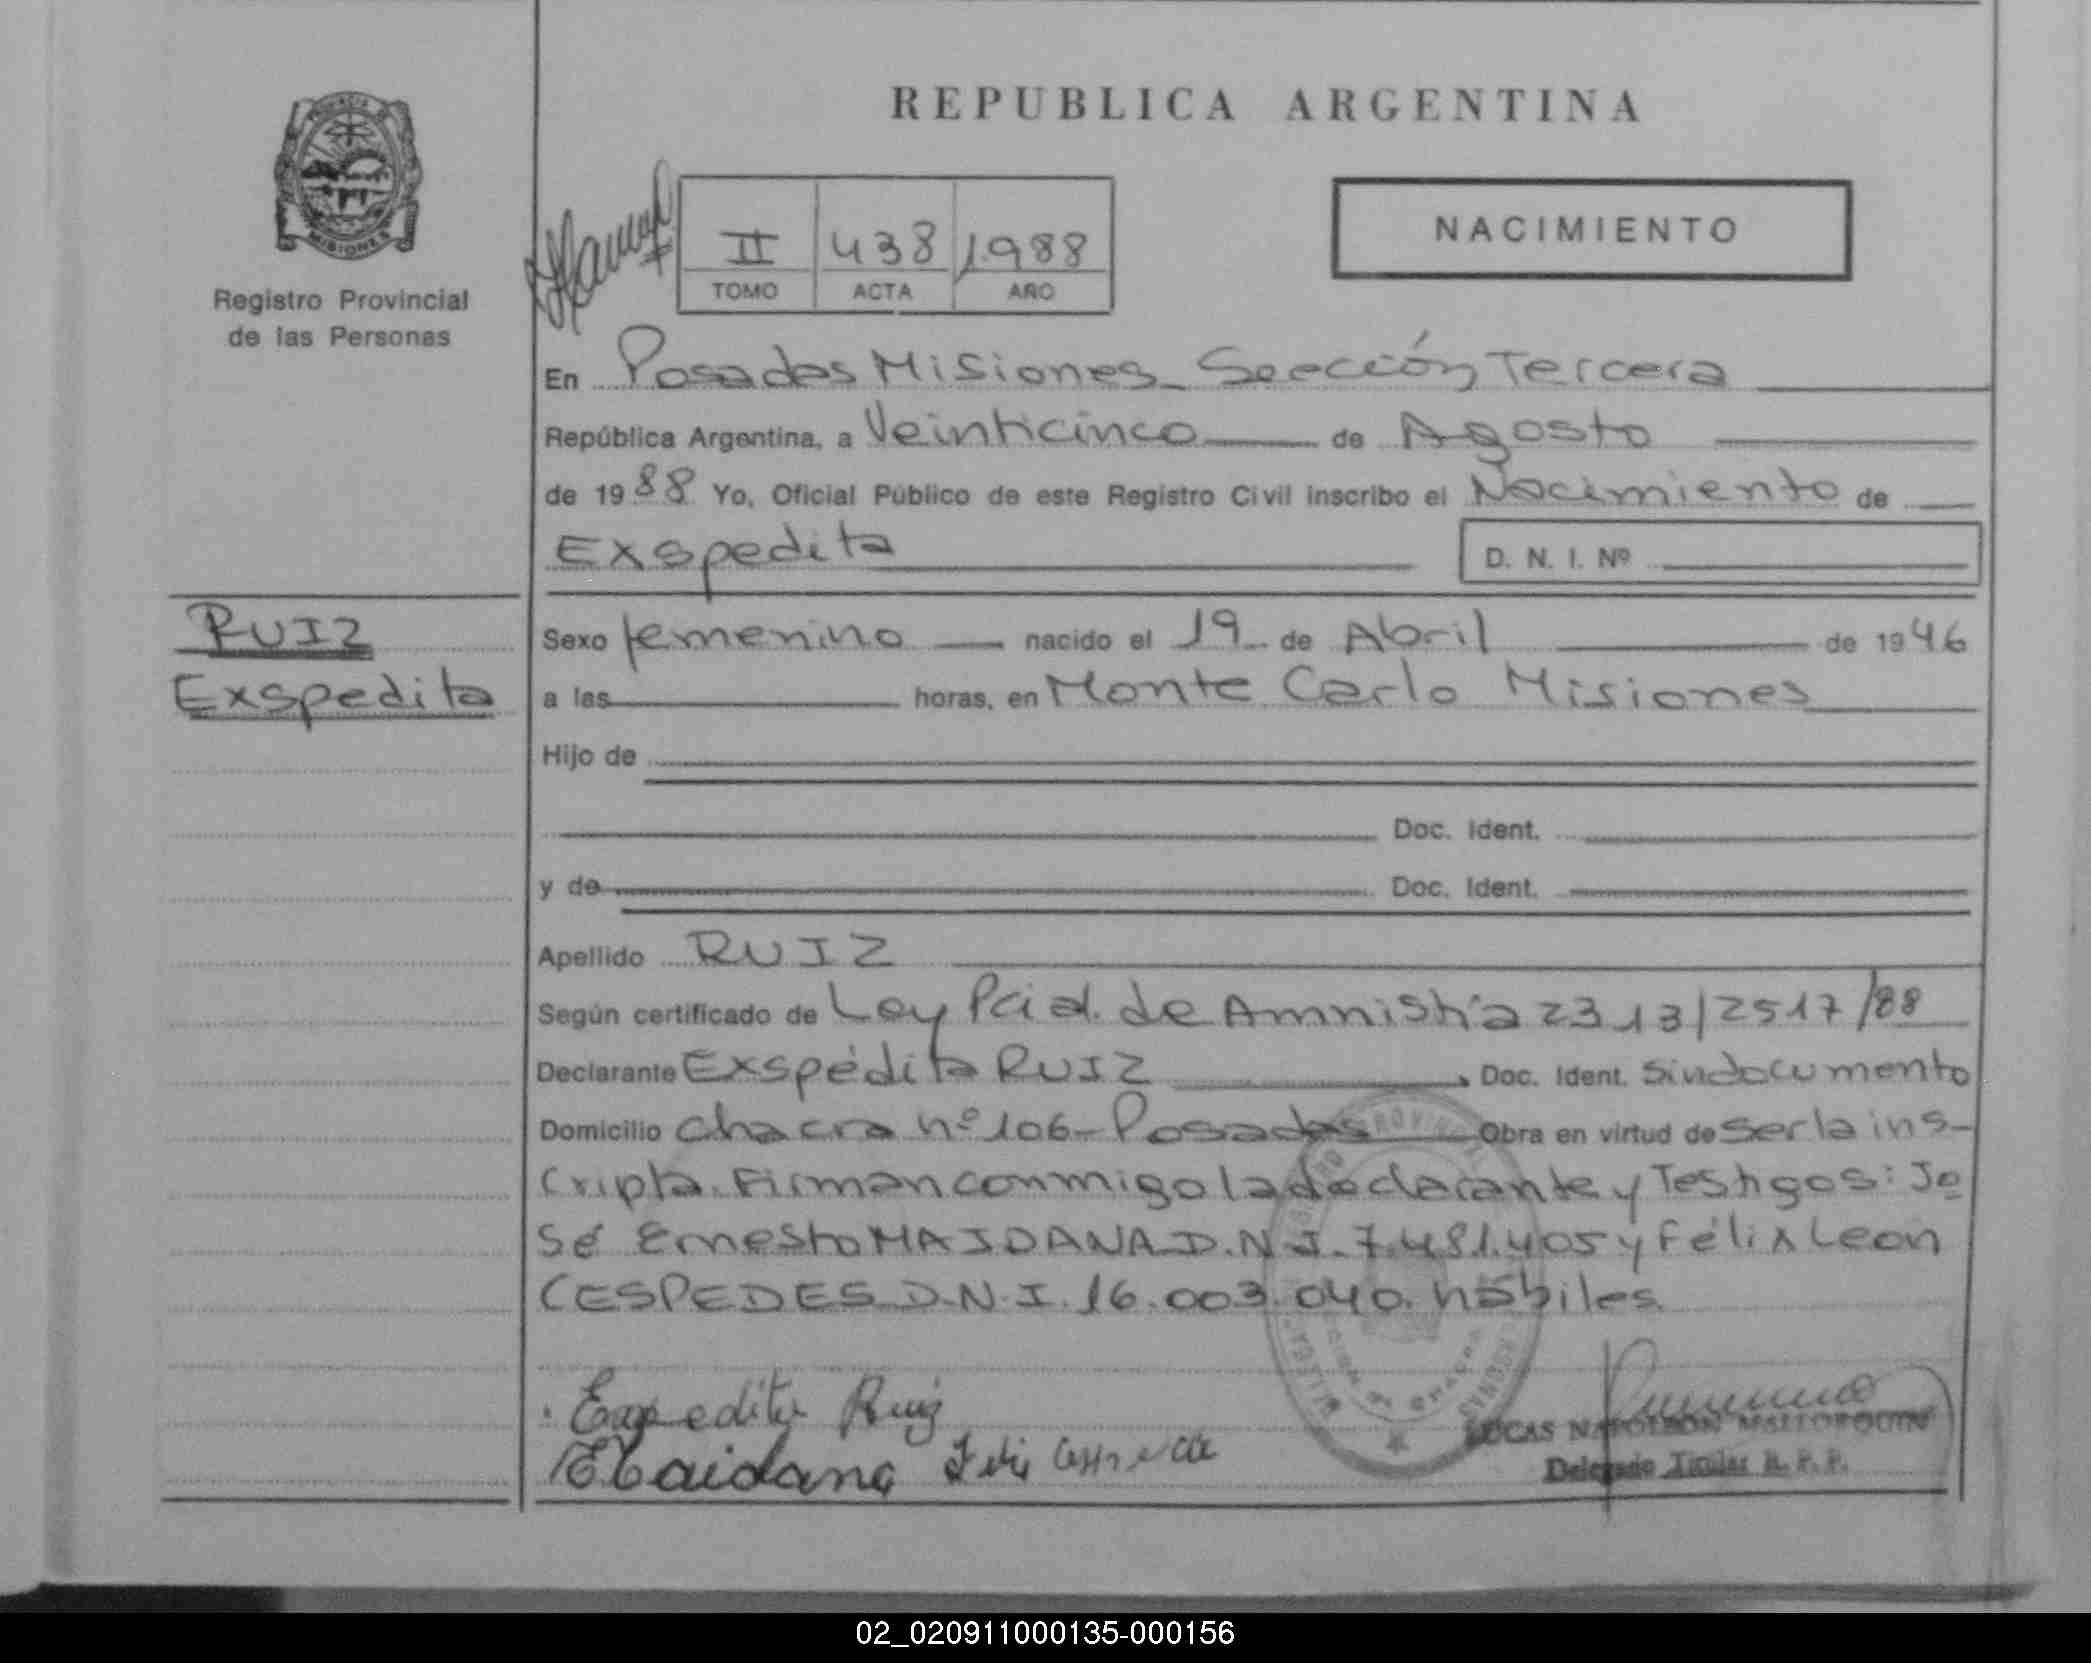 REPUBLICA ARGENTINA
MISIONES
Registro Provincial
de las Personas
II 438 1988
TOMO ACTA AÑO
NACIMIENTO
En Posadas Misiones Sección Tercera
República Argentina, a Veinticinco de Agosto
de 1988 Yo, Oficial Público de este Registro Civil inscribo el Nacimiento de
Exspedita D. N. I. Nº
RUIZ
Exspedita
Sexo femenino nacido el 19 de Abril de 1946
a las horas, en Monte Carlo Misiones
Hijo de
Doc. Ident.
y de Doc. Ident.
Apellido RUIZ
Según certificado de Ley Pcial. de Amnistía 2313/2517/88
Declarante Exspédita RUIZ Doc. Ident. Sindocumento
Domicilio Chacra nº 106-Posadas Obra en virtud de ser la ins-
cripta. Firman conmigo la declarante y Testigos: Jo
sé Ernesto MAIDANA D.N.I. 7.481.405 y Félix Leon
CESPEDES D.N.I. 16.003.040. hábiles
Exspedita Ruiz
EMaidana
LUCAS NAPOLEON MALLORQUIN
Delegado Titular R. P. P.
02_020911000135-000156